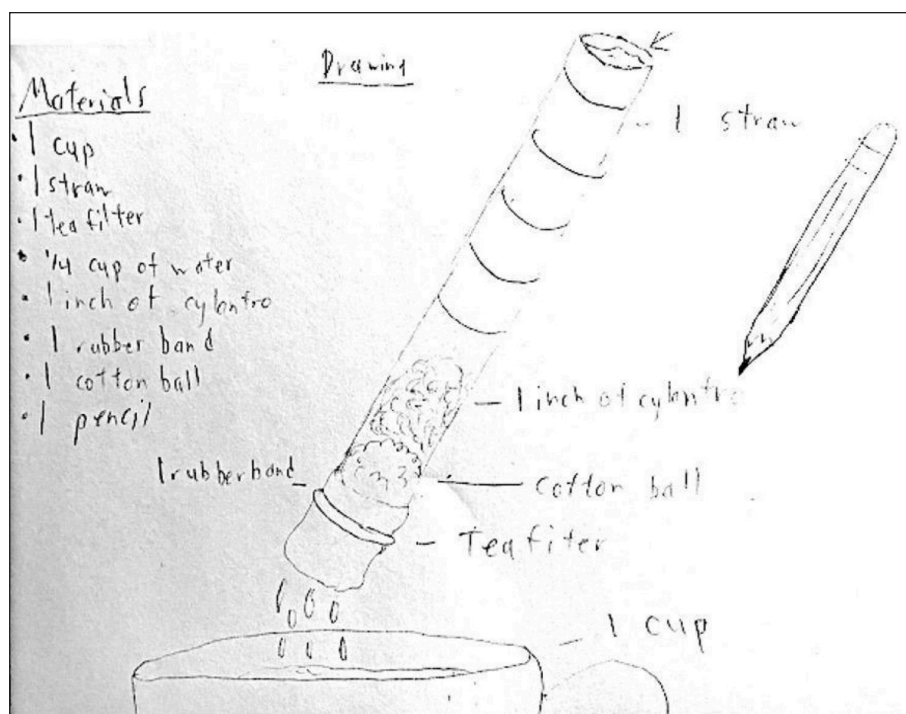 Drawing
Materials
· 1 cup
· 1 straw
· 1 tea filter
· 1/4 cup of water
· 1 inch of cylantro
· 1 rubber band
· 1 cotton ball
· 1 pencil
1 straw
1 inch of cylantro
1 rubber band
cotton ball
Tea fiter
1 cup